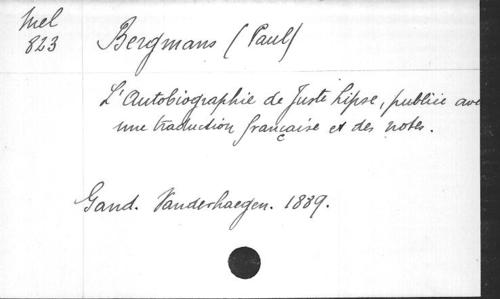 Mel
823
Bergmans (Paul)
L'Autobiographie de Juste Lipse, publiée ave
une traduction française et des notes.
Gand. Vanderhaegen. 1889.